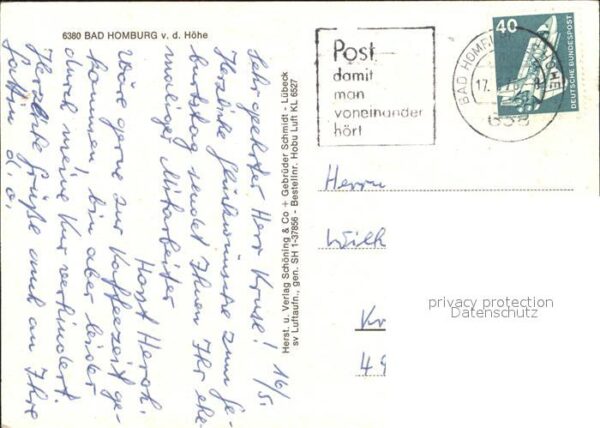 6380 BAD HOMBURG v. d. Höhe
16/5.
Sehr geehrter Herr Kruse!
Herzliche Glückwünsche zum Ge-
burtstag sendet Ihnen Ihr ehe-
maliger Mitarbeiter
Horst
Wäre gerne zur Kaffeezeit ge-
kommen, bin aber leider
durch meine Kur verhindert.
Herzliche Grüße auch an Ihre
Gattin
d. o.
Herst. u. Verlag Schöning & Co + Gebrüder Schmidt - Lübeck
sv Luftaufn., gen. SH 1-37856 - Bestellnr. Hobu Luft KL 6527
Post
damit
man
voneinander
hört
BAD HOMBURG
HÖHE
17.
638
40
DEUTSCHE BUNDESPOST
Herrn
Wilh
Kr
49
privacy protection
Datenschutz